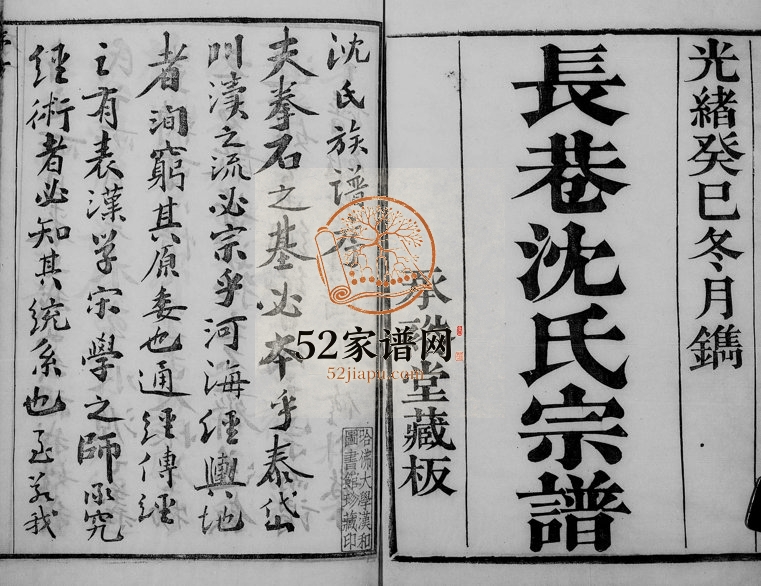 光緒癸巳冬月鐫
長巷沈氏宗譜
承 堂藏板
沈氏族譜序
夫拳石之基必本乎泰岱
川瀆之流必宗乎河海經輿地
者洵窮其原委也通經傳經
之有表漢学宋學之師承究
經術者必知其統系也 我
哈佛大學漢和
圖書館珍藏印
52家谱网
52jiapu.com